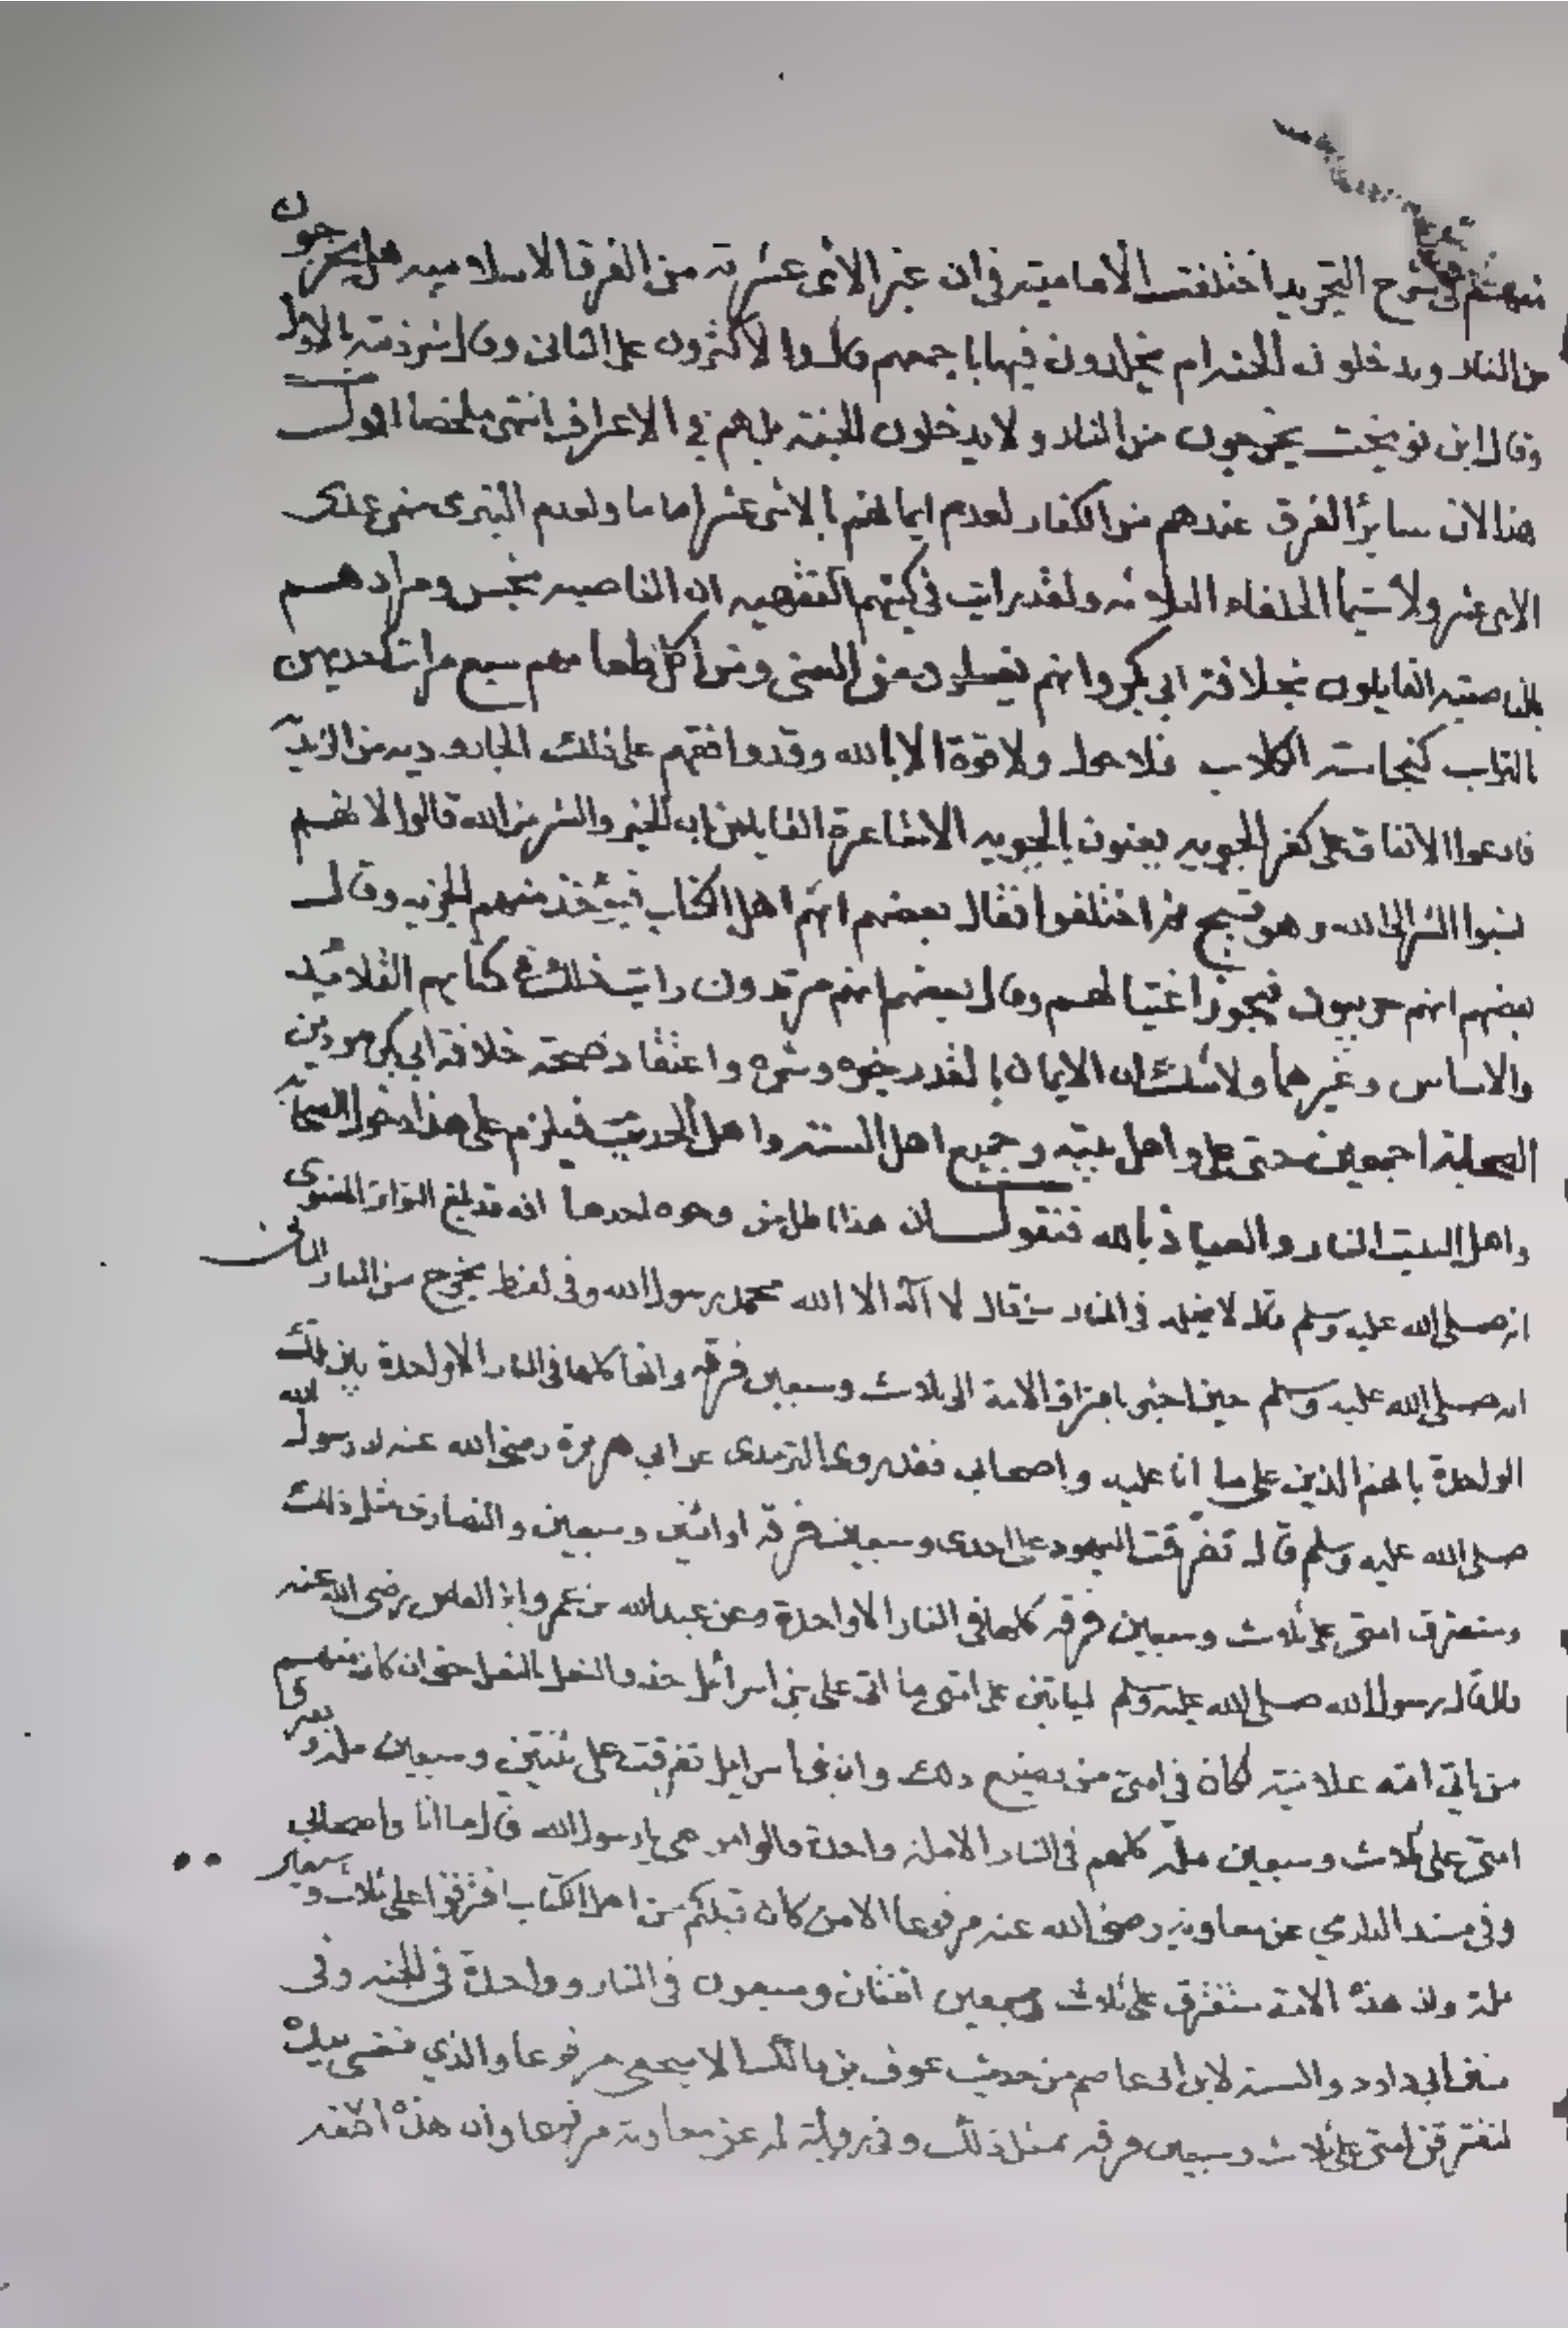 في شرح التجريد اختلفت الأمامية في ان غير الاثنى عشرية من الفرق الاسلاميه هل يخرجون
من النار ويدخلون الجنة ام يخلدون فيها باجمعهم قال والاكثرون على الثاني وقال شرذمة بالاول
وقال ابن نوبخت يخرجون من النار ولا يدخلون الجنة بل هم في الاعراف انتهى ملخصا اقول
هذا لان سائر الفرق عندهم من الكفار لعدم ايمانهم بالاثنى عشر اماما ولعدم التبرى من
الاثنى عشر ولا سيما الخلفاء الثلاثه ولقد رايت في كتبهم الفقهيه ان الناصبيه نجس ومرادهم
بالناصبيه القايلون بخلافة ابي بكر وانهم يغسلون من السنى ومن اكل طعامهم سبع مرات احديهن
بالتراب كنجاسة الكلاب فلا حول ولا قوة الا بالله وقد وافقهم على ذلك الجاروديه من الزيدية
فادعوا الاتفاق على كفر الجبريه يعنون بالجبريه الاشاعرة القايلين بان الخير والشر من الله قالوا لانهم
نسبوا الشر الى الله وهو قبيح ثم اختلفوا فقال بعضهم انهم اهل الكتاب فيؤخذ منهم الجزيه وقال
بعضهم انهم حربيون فيجوز اغتيالهم وقال بعضهم انهم مرتدون رايت ذلك في كتابهم القلائد
والاساس وغيرهما ولا شك ان الايمان بالقدر خيره وشره واعتقاد صحة خلافة ابي بكر هو دين
الصحابة اجمعين حتى علي واهل بيته وجميع اهل السنة واهل الحديث فيلزم على هذا دخول الصحابة
واهل البيت النار والعياذ بالله فنقول ان هذا باطل من وجوه احدها انه قد بلغ التواتر المعنوى
انه صلى الله عليه وسلم قال لا يخلد في النار من قال لا اله الا الله محمد رسول الله وفي لفظ يخرج من النار الثاني
انه صلى الله عليه وسلم حين اخبر بافتراق الامة الى ثلاث وسبعين فرقة وانها كلها في النار الا واحدة بين تلك
الواحدة بانهم الذين على ما انا عليه واصحابي فقد روى الترمذى عن ابي هريرة رضي الله عنه ان رسول الله
صلى الله عليه وسلم قال تفرقت اليهود على احدى وسبعين فرقة او اثنين وسبعين والنصارى مثل ذلك
وستفترق امتي على ثلاث وسبعين فرقه كلها في النار الا واحدة وعن عبد الله بن عمرو ابن العاص رضي الله عنه
قال قال رسول الله صلى الله عليه وسلم لياتين على امتي ما اتى على بني اسرائيل حذو النعل بالنعل حتى ان كان منهم
من اتى امه علانية لكان في امتي من يصنع ذلك وان بني اسرايل تفرقت على ثنتين وسبعين ملة و
امتي على ثلاث وسبعين ملة كلهم في النار الا ملة واحدة قالوا من هي يا رسول الله قال ما انا واصحابي
وفي مسند الدارمي عن معاوية رضي الله عنه مرفوعا الا من كان قبلكم من اهل الكتاب افترقوا على ثلاث وسبعين
ملة وان هذه الامة ستفترق على ثلاث وسبعين اثنتان وسبعون في النار وواحدة في الجنه وفي
سنن ابي داود والسنة لابن ابي عاصم من حديث عوف بن مالك الاشجعي مرفوعا والذي نفسي بيده
لتفترقن امتي على ثلاث وسبعين فرقه بمثل ذلك وفي رواية له عن معاوية مرفوعا وان هذه